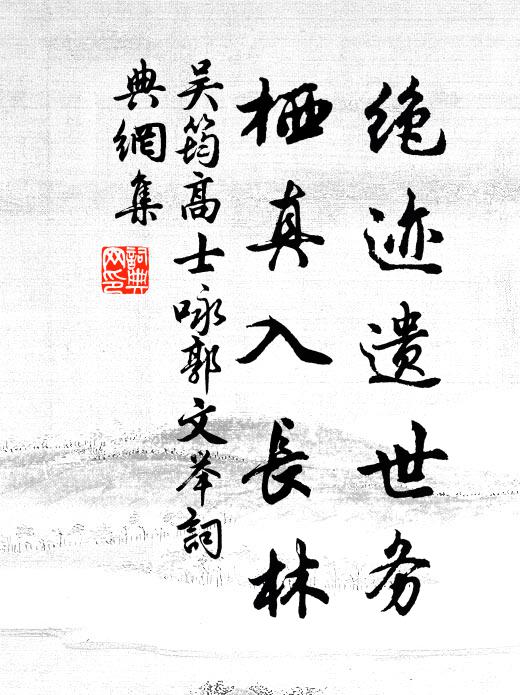 绝迹遗世务
栖真入長林
吴筠高士咏郭文举詞
典網集
詞典
网印